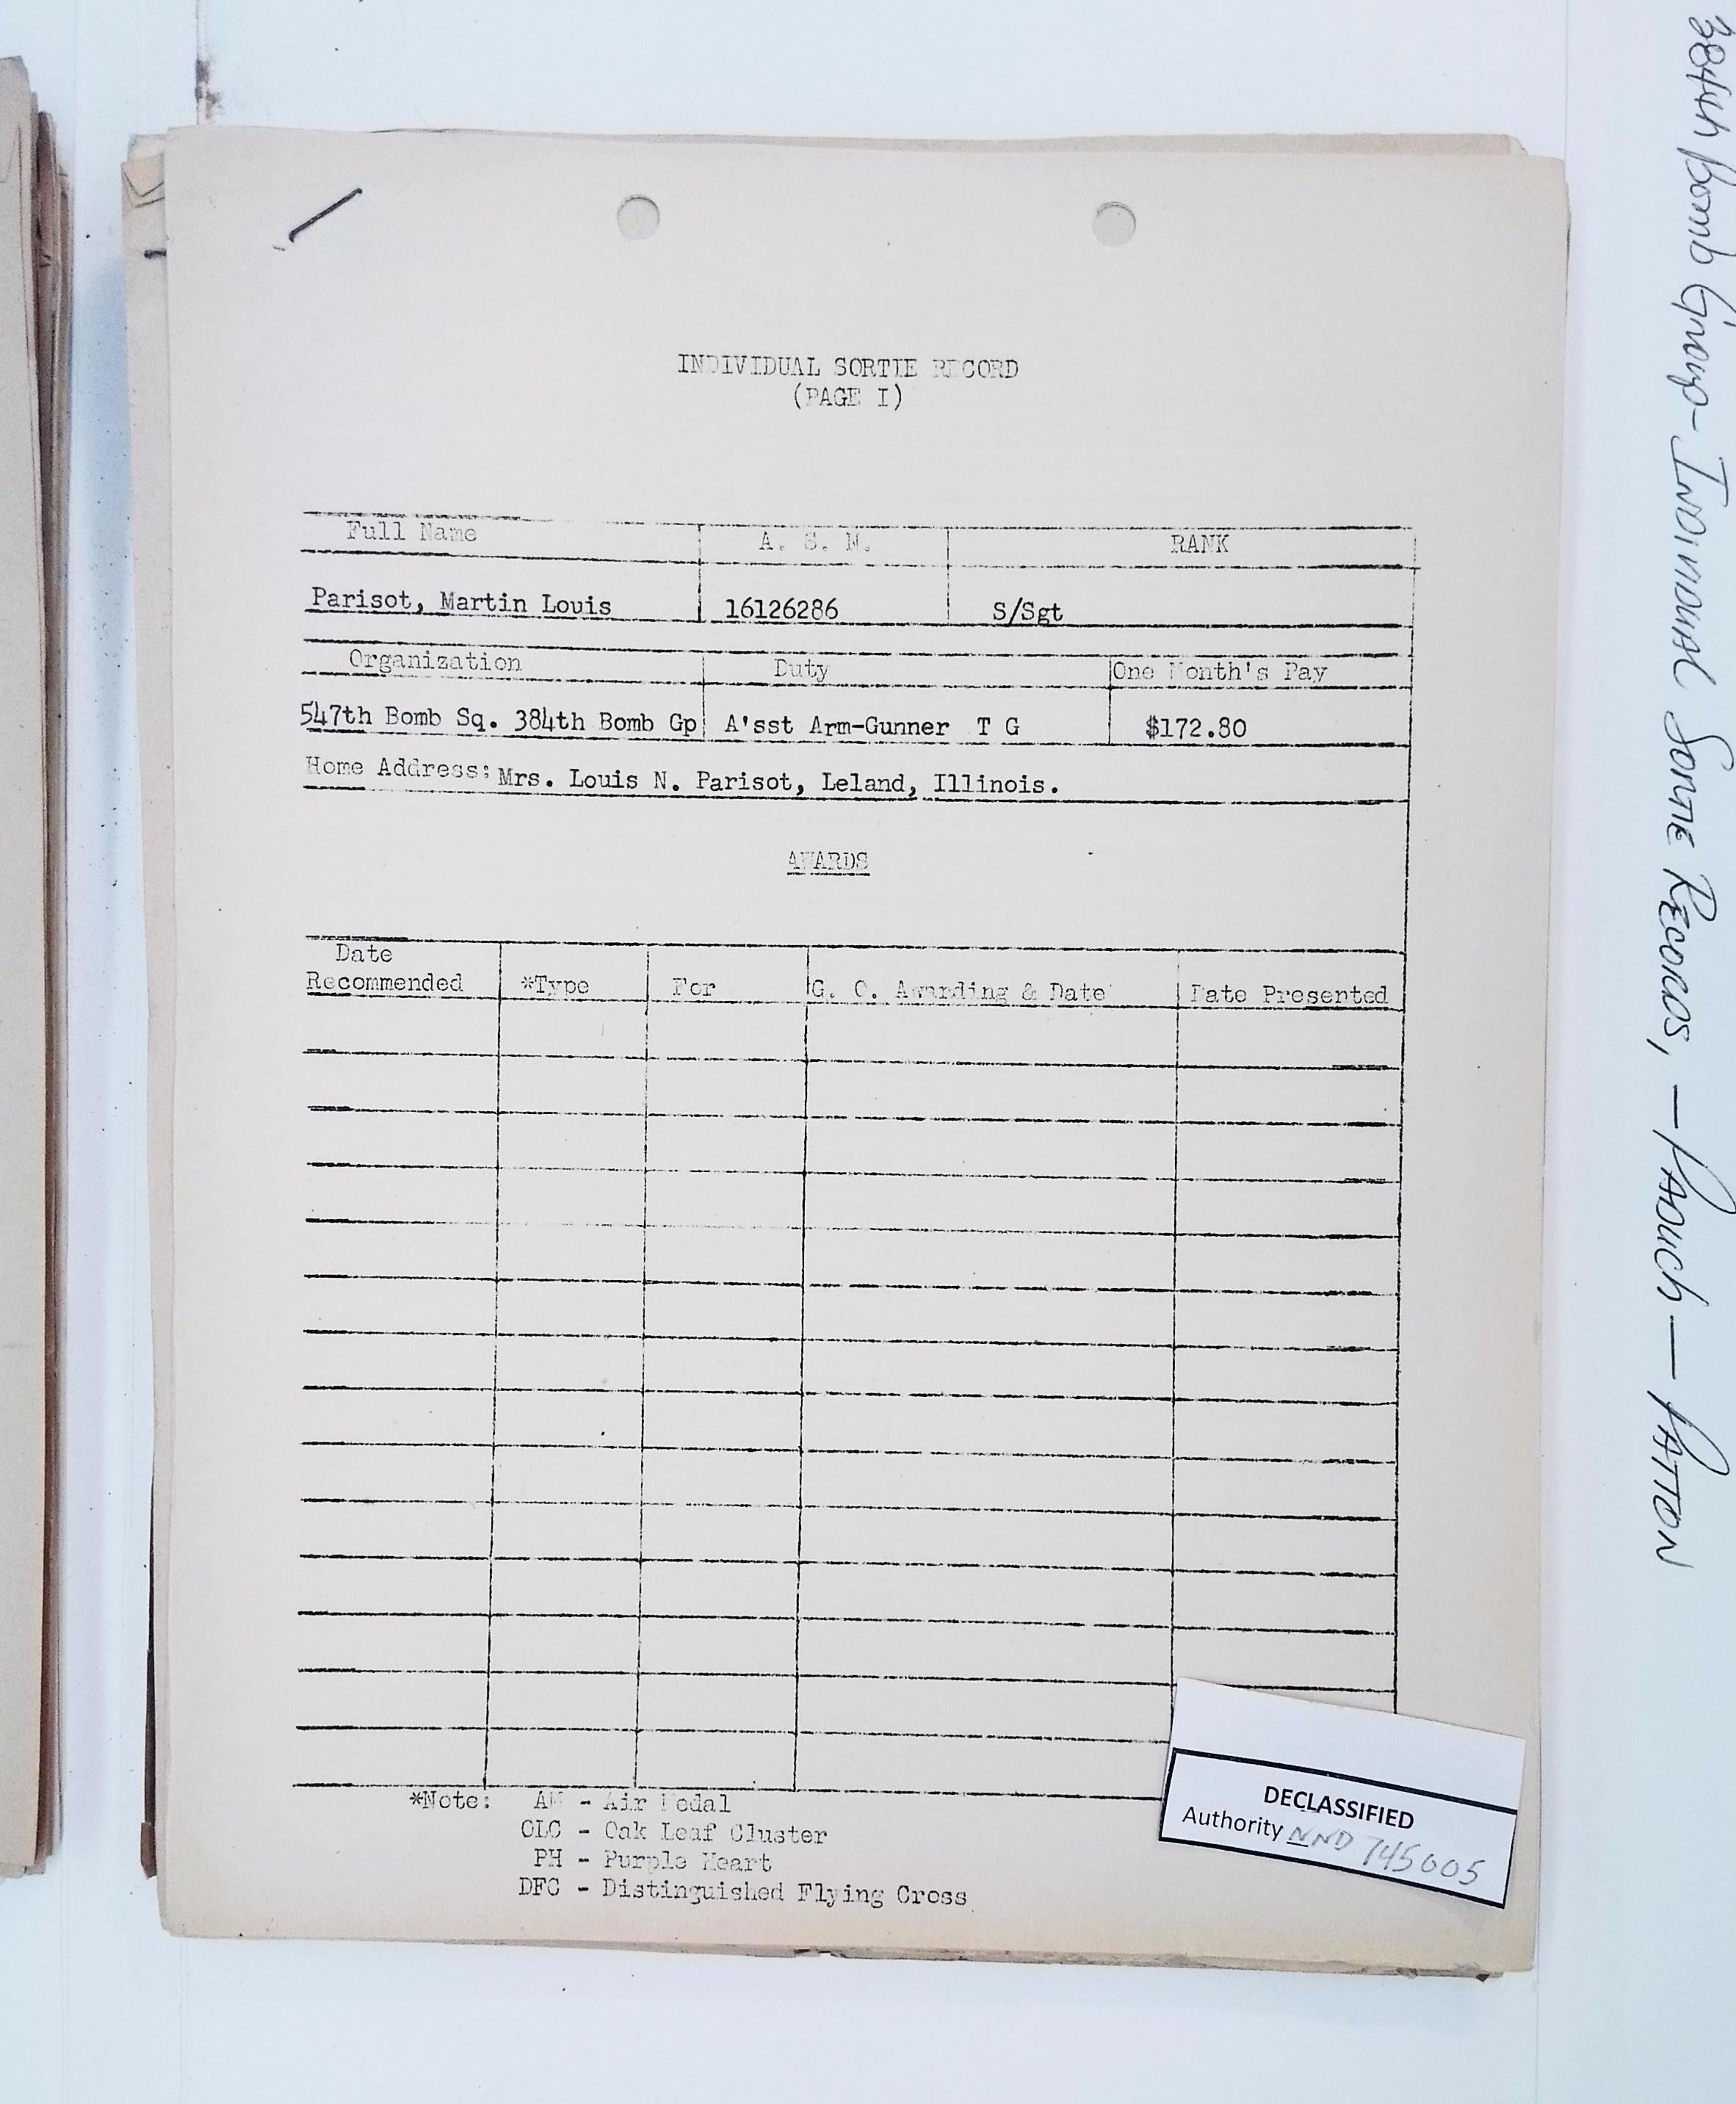 INDIVIDUAL SORTIE RECORD
(PAGE I)
Full Name A. S. N. RANK
Parisot, Martin Louis 16126286 S/Sgt
Organization Duty One Month's Pay
547th Bomb Sq. 384th Bomb Gp A'sst Arm-Gunner T G $172.80
Home Address: Mrs. Louis N. Parisot, Leland, Illinois.
AWARDS
Date
Recommended *Type For G. O. Awarding & Date Date Presented
*Note: AM - Air Medal
OLC - Oak Leaf Cluster
PH - Purple Heart
DFC - Distinguished Flying Cross
DECLASSIFIED
Authority NND 745005
384th Bomb Group - Individual Sortie Records, - Paouch - Patton